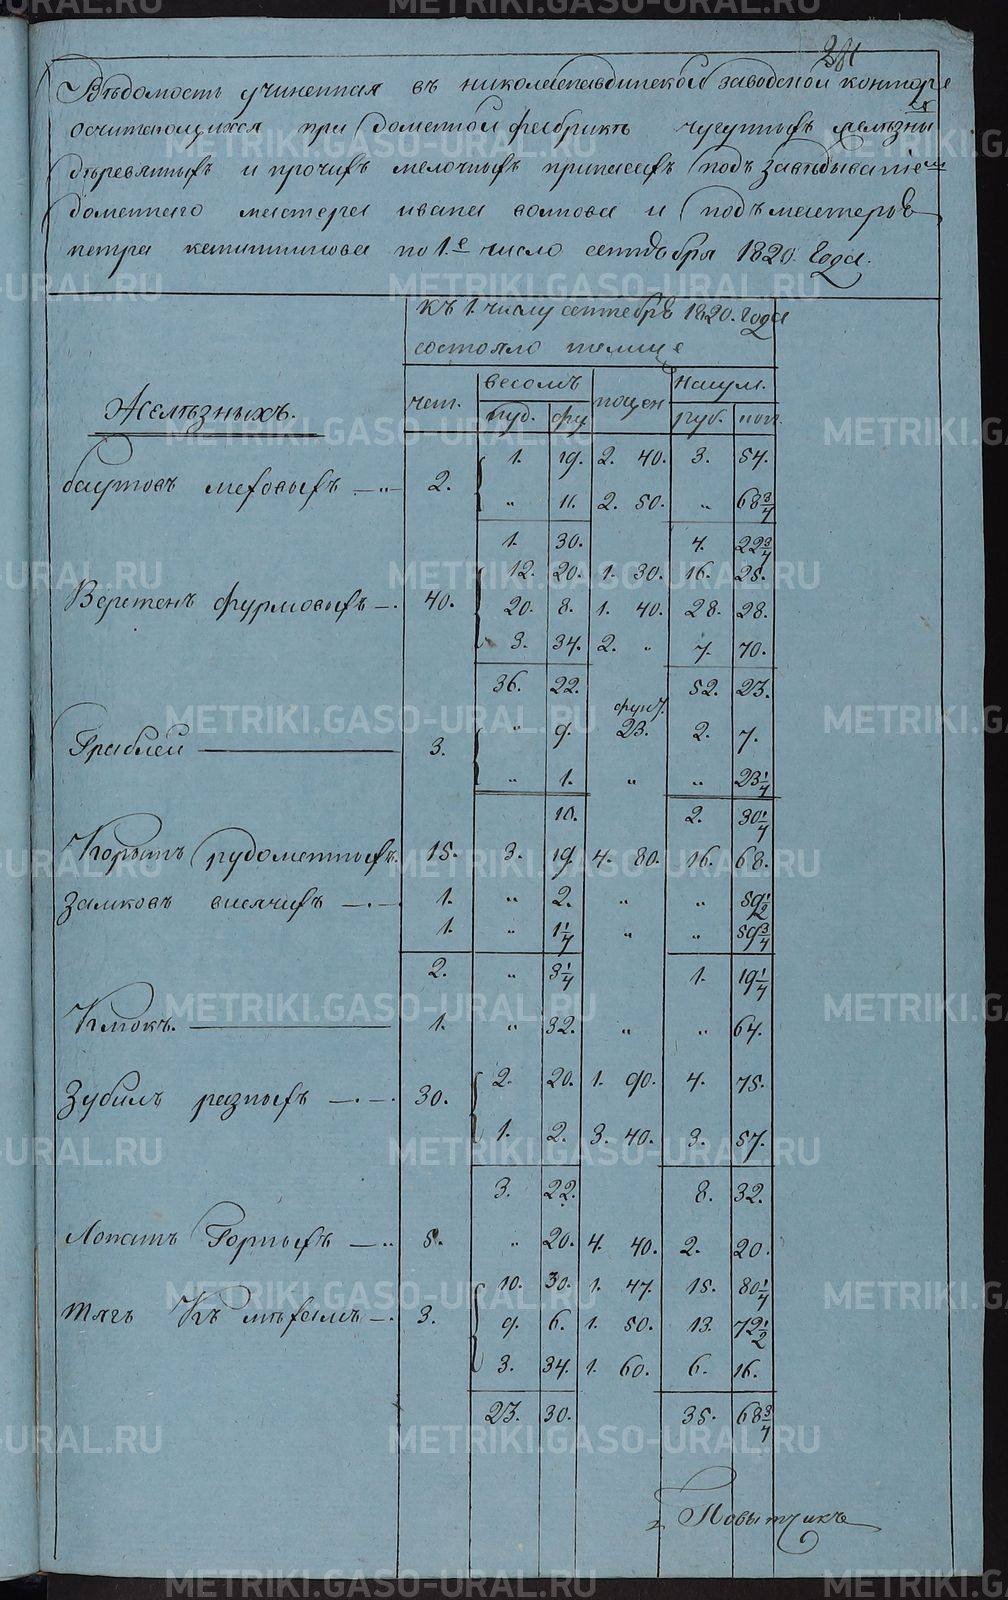 281
Вѣдомость учиненная въ николаепавдинской заводской конторе
осчитающихся при доменной фабрикѣ чугунныхъ железныхъ
дѣревянныхъ и прочихъ мелочныхъ припасахъ подъ завѣдыванiемъ
доменнаго мастера ивана волкова и подъмастерья
петра по 1е число сентября 1820 Года.
къ 1. числу сентября 1820. Года
состояло налице
Желѣзныхъ.
чет. весомъ поцен насум.
пуд. фу. руб. коп.
болтовъ меховыхъ 2. 1. 19. 2. 40. 3. 54.
" 11. 2. 50. " 68 3/4
1. 30. 4. 22 3/4
Веретенъ фурмовыхъ 40. 12. 20. 1. 30. 16. 25.
20. 8. 1. 40. 28. 28.
3. 34. 2. " 7. 70.
36. 22. 52. 23.
фунт.
Граблей 3. " 9. 23. 2. 7.
" 1. " " 23 1/4
10. 2. 30 1/4
Корытъ рудометныхъ. 15. 3. 19. 4. 80. 16. 68.
Замковъ висячихъ 1. " 2. " " 59 1/2
1. " 1 1/4 " " 59 3/4
2. " 3 1/4 1. 19 1/4
Клюкъ. 1. " 32. " " 64.
Зубилъ разныхъ 30. 2. 20. 1. 90. 4. 75.
1. 2. 3. 40. 3. 57.
3. 22. 8. 32.
Лопатъ Горныхъ 5. " 20. 4. 40. 2. 20.
тягъ Къ мѣхамъ 3. 10. 30. 1. 47. 15. 80 1/4
9. 6. 1. 50. 13. 72 1/2
3. 34. 1. 60. 6. 16.
23. 30. 35. 68 3/4
Повытчикъ
METRIKI.GASO-URAL.RU